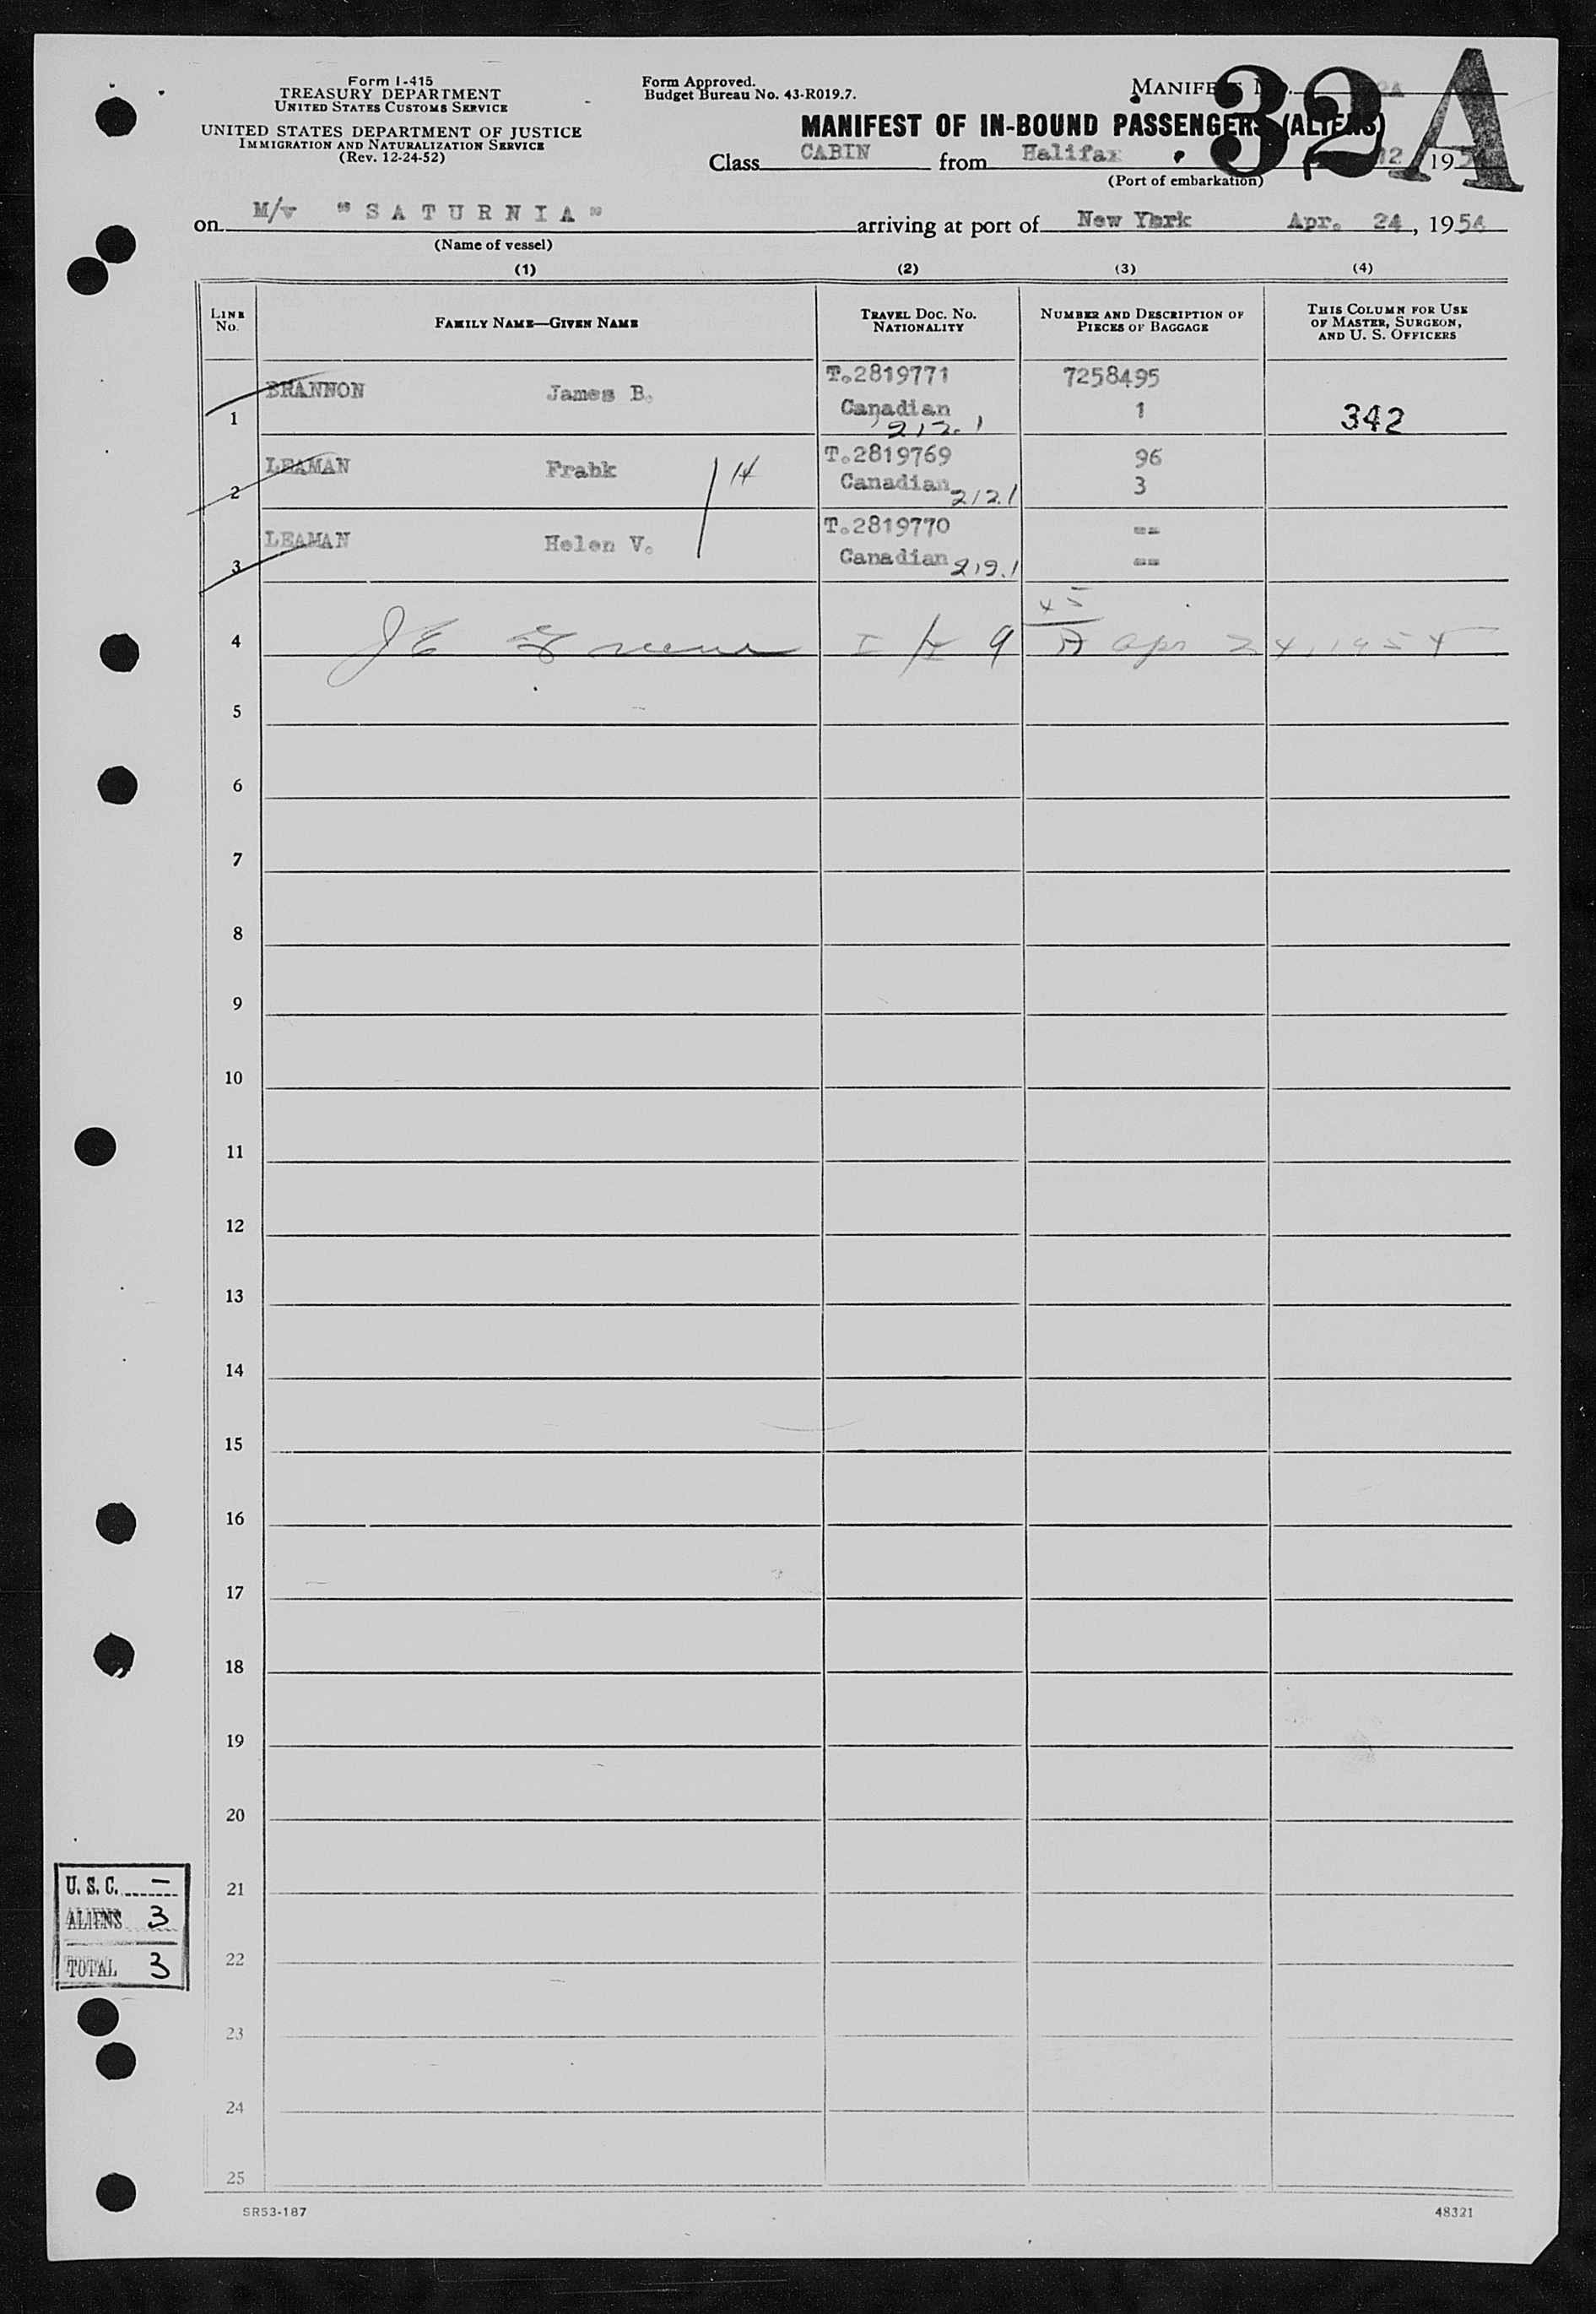 Form I-415
TREASURY DEPARTMENT
UNITED STATES CUSTOMS SERVICE
UNITED STATES DEPARTMENT OF JUSTICE
IMMIGRATION AND NATURALIZATION SERVICE
(Rev. 12-24-52)
Form Approved.
Budget Bureau No. 43-R019.7.
32A
MANIFEST OF IN-BOUND PASSENGERS (ALIENS)
Class CABIN from Halifax 19
(Port of embarkation)
on M/v "SATURNIA" arriving at port of New Yark Apr. 24, 1954
(Name of vessel)
(1) (2) (3) (4)
LINE No. FAMILY NAME—GIVEN NAME TRAVEL DOC. No. NATIONALITY NUMBER AND DESCRIPTION OF PIECES OF BAGGAGE THIS COLUMN FOR USE OF MASTER, SURGEON, AND U. S. OFFICERS
1 BRANNON James B. T.2819771 7258495
Canadian 1 342
212.1
2 LEAMAN Frabk 14 T.2819769 96
Canadian 212.1 3
3 LEAMAN Helen V. T.2819770 --
Canadian 212.1 --
4 J E Greene 9 Apr 24, 1954
5
6
7
8
9
10
11
12
13
14
15
16
17
18
19
20
21
22
23
24
25
U. S. C. –
ALIENS 3
TOTAL 3
SR53-187
48321